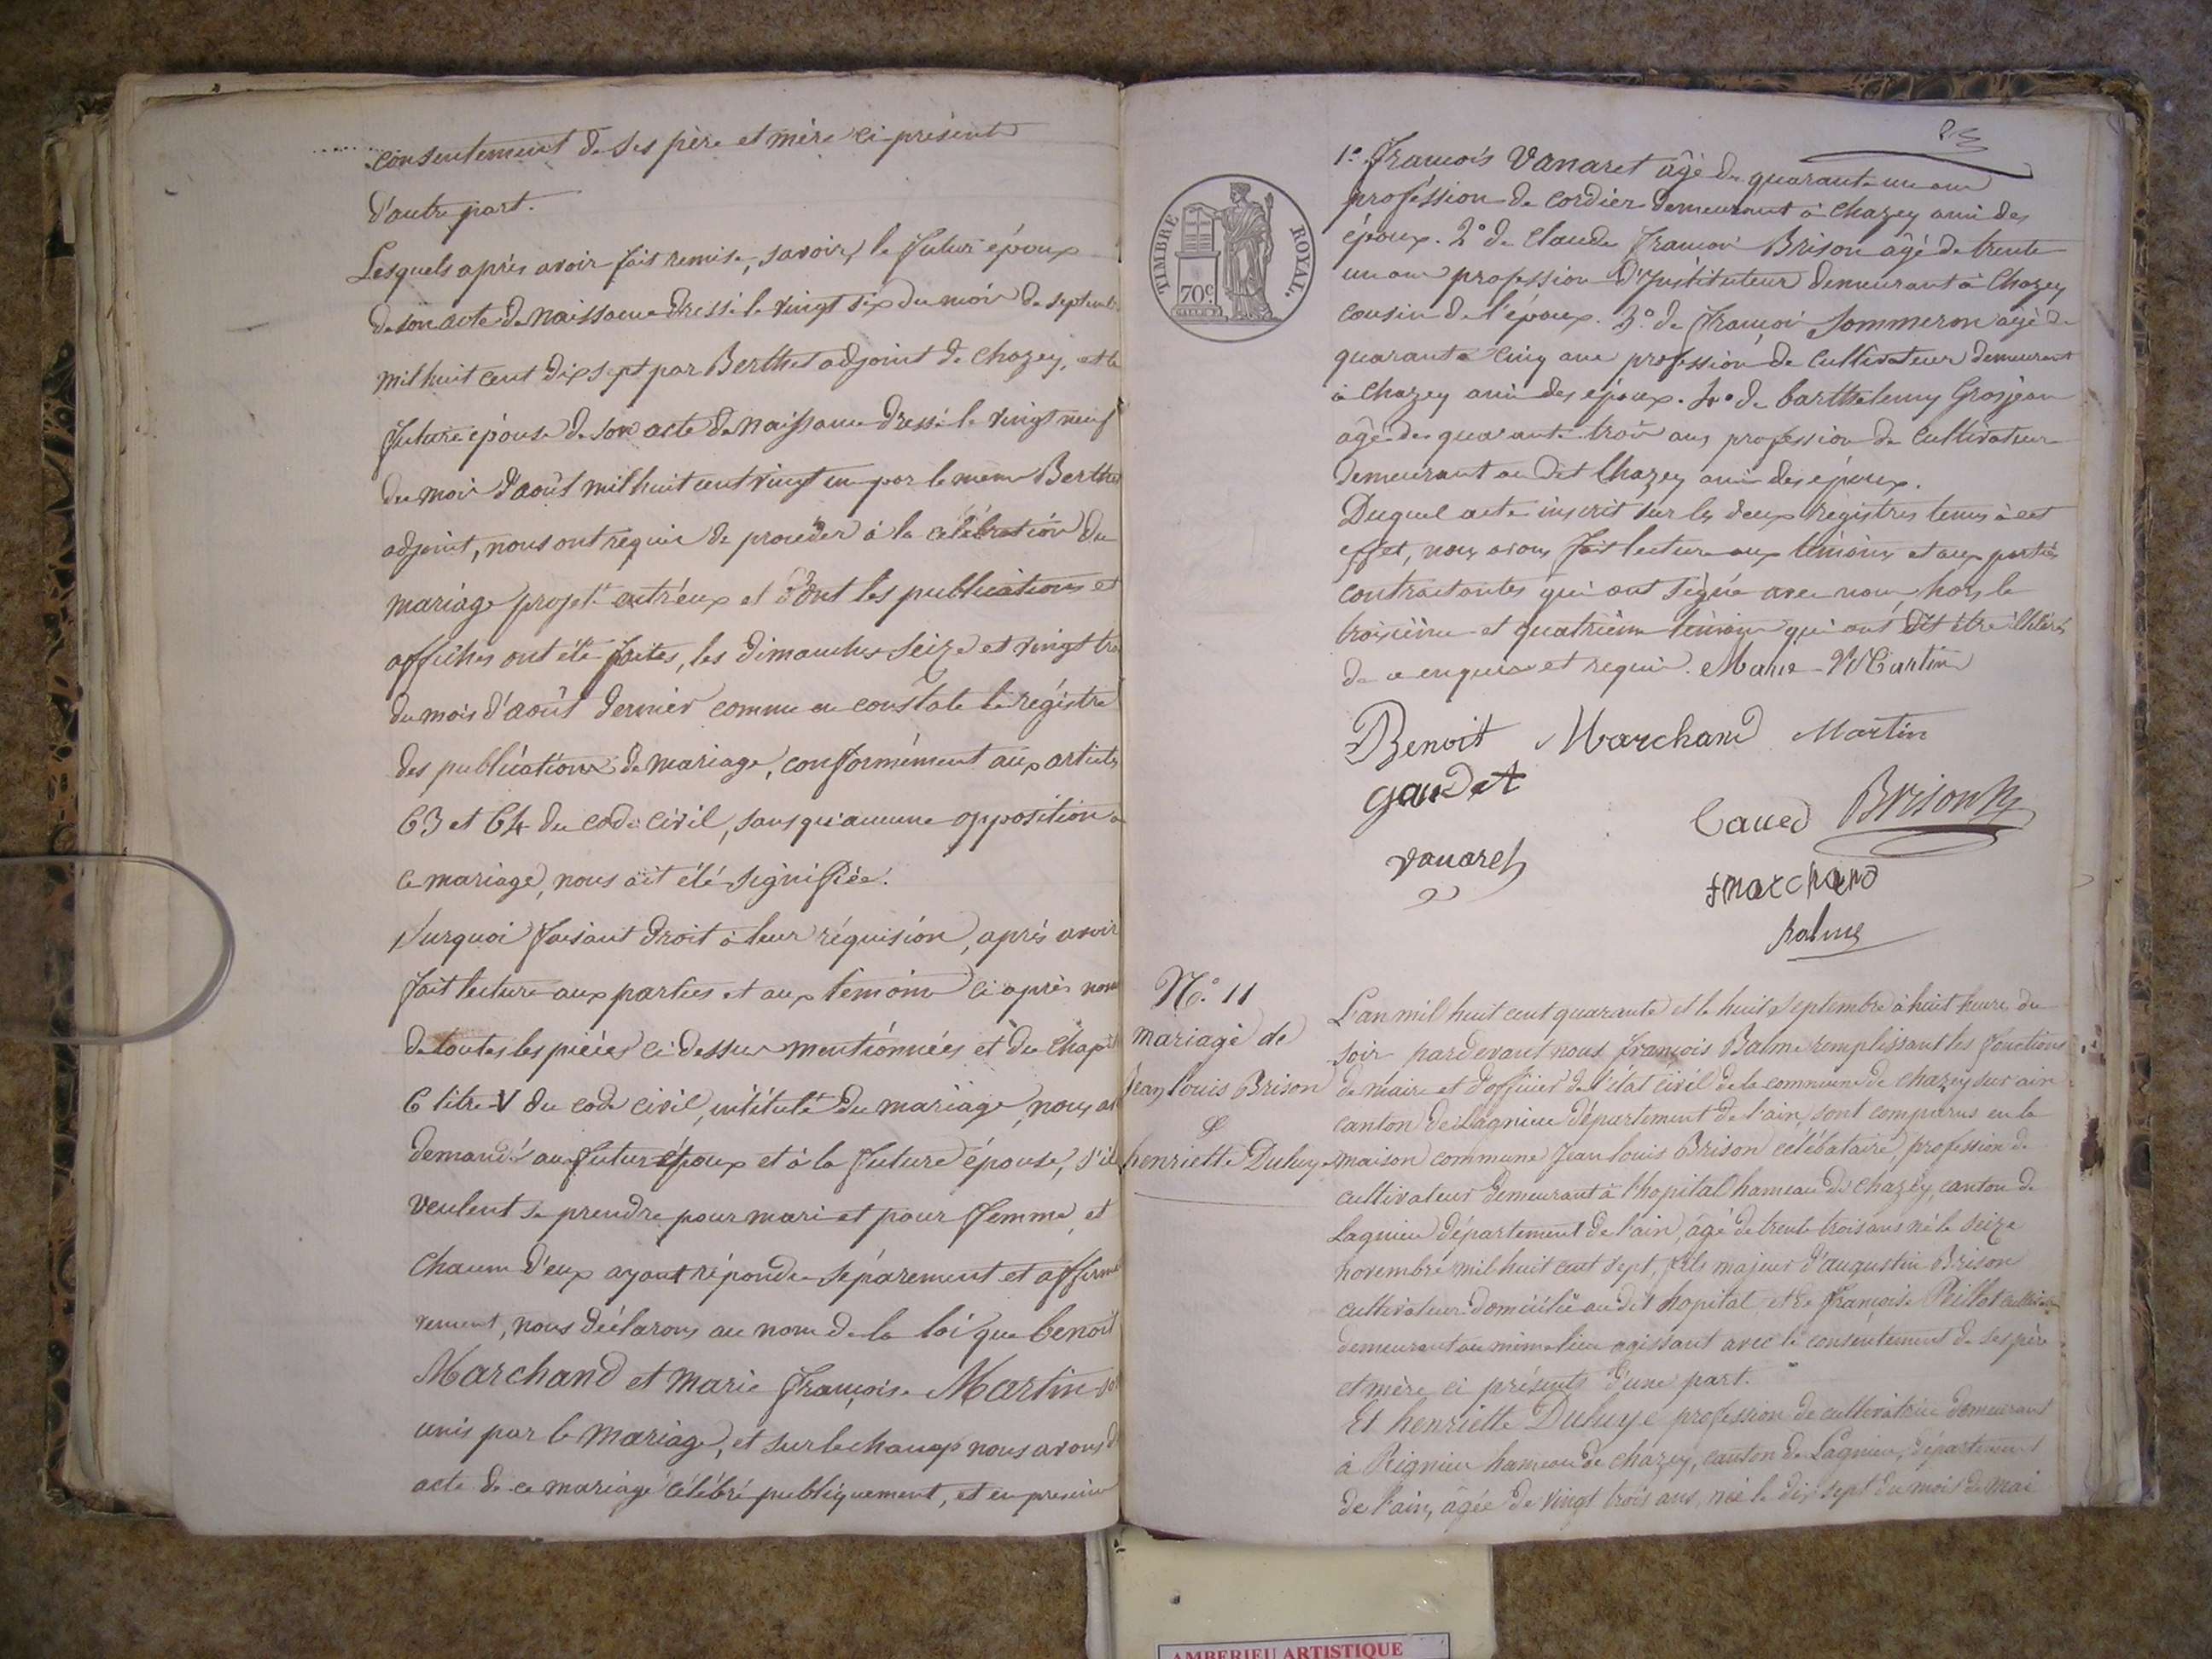 consentement de ses père et mère ci présents
d'autre part.
Lesquels après avoir fait remise, savoir, le futur époux
de son acte de Naissance dressé le vingt six du mois de septemb
mil huit cent dix sept par Berthet adjoint de Chazey, et la
future épouse de son acte de Naissance dressé le vingt neuf
du mois d'août mil huit cent vingt un par le même Berthet
adjoint, nous ont requis de procéder à la célébration du
mariage projeté entr'eux et dont les publications et
affiches ont été faites, les dimanches seize et vingt tro
du mois d'août dernier comme en constate le régistre
des publications de mariage, conformément aux articles
63 et 64 du code civil, sans qu'aucune opposition à
ce mariage, nous ait été signifiée.
Surquoi faisant droit à leur réquision, après avoir
fait lecture aux parties et aux témoins ci après nom
de toutes les pièces ci dessus mentionnées et du chapit
6 titre V du code civil, intitulé du mariage, nous av
demandé au futur époux et à la future épouse, s'il
veulent se prendre pour mari et pour femme, et
chacun d'eux ayant répondu séparement et affirma
vement, nous déclarons au nom de la loi que benoit
Marchand et marie françoise Martin so
unis par le mariage, et sur le champ nous avons d
acte de ce mariage célébré publiquement, et en présence
TIMBRE ROYAL.
70c
1.° François Vanaret âgé de quarante un ans
proféssion de cordier demeurant à Chazey ami des
époux. 2° de Claude François Brison âgé de trente
un ans profession d'Instituteur demeurant à Chazey
cousin de l'époux. 3.° de François Sommeron âgé de
quarante cinq ans profession de cultivateur demeurant
à Chazey ami des époux. 4° de barthelemy Grosjean
âgé de quarante trois ans, profession de cultivateur
demeurant au dit Chazey ami des époux.
Duquel acte inscrit sur les deux régistres tenus à cet
effet, nous avons fait lecture aux témoins et aux parties
contractantes qui ont signé avec nous hors le
troisième et quatrième témoins qui ont dit être illitérés
de ce enquis et requis. Marie Martin
Benoit Marchand Martin
gaudet
Brison
vanaret
marchand
Balme
N.° 11
mariage de
Jean louis Brison
&
henriette Duluye
L'an mil huit cent quarante et le huit septembre à huit heures du
soir pardevant nous françois Balme remplissant les fonctions
de maire et d'officier de l'état civil de la commune de chazey sur ain
canton de Lagnieu département de l'ain, sont comparus en la
maison commune Jean louis Brison célébataire, profession de
cultivateur demeurant à l'hopital hameau de chazey, canton de
Lagnieu département de l'ain, âgé de trente trois ans né le seize
novembre mil huit cent sept, fils majeur d'augustin Brison
cultivateur domicilié au dit hopital et de françoise
demeurant au même lieu agissant avec le consentement de ses père
et mère ci présents d'une part.
Et henriette Duluye profession de cultivatrice demeurant
à Rignieu hameau de chazey, canton de Lagnieu, département
de l'ain, âgée de vingt trois ans, née le dix sept du mois de mai
AMBERIEU ARTISTIQUE